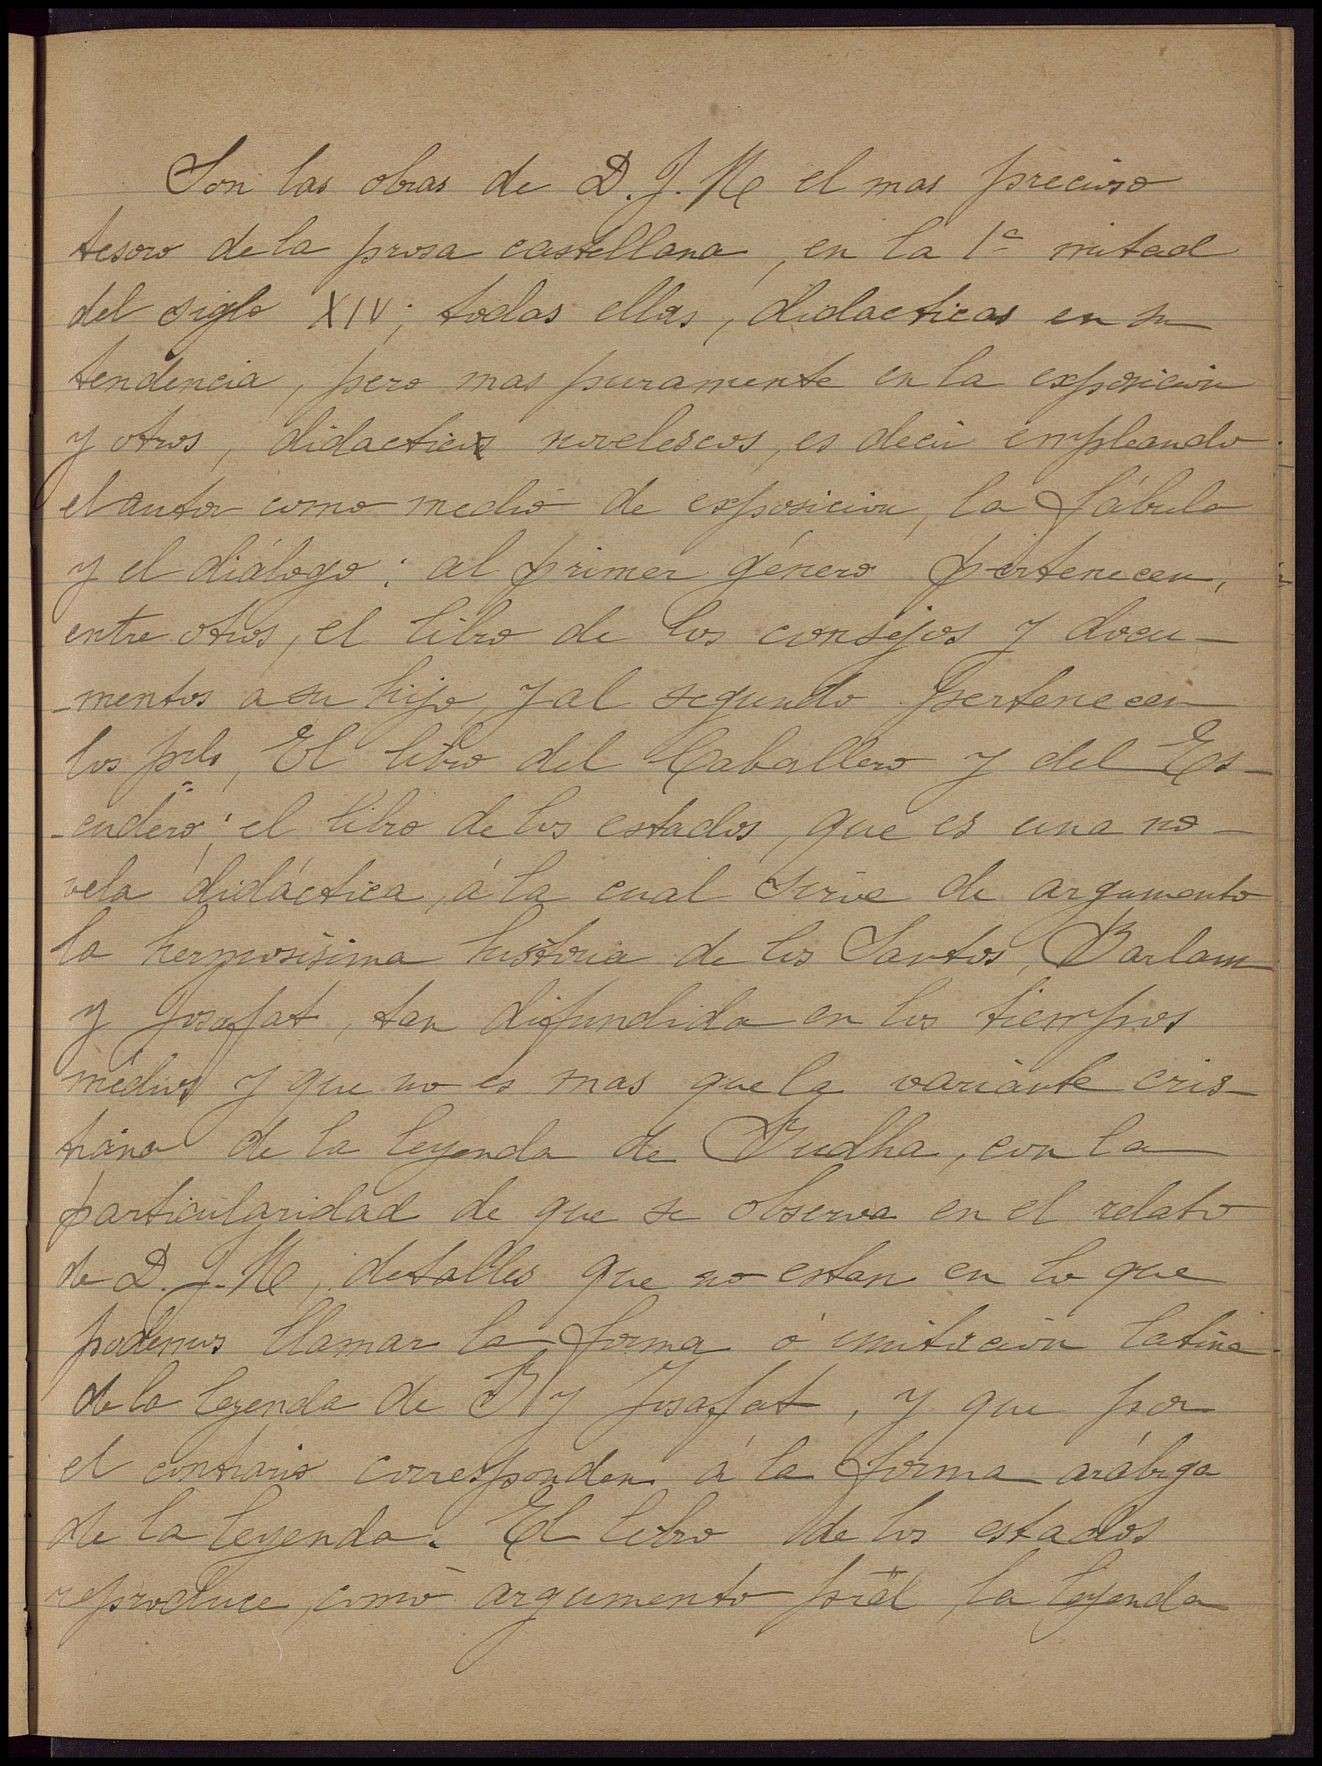 Son las obras de D. J. M el mas precioso
tesoro de la prosa castellana, en la 1ª mitad
del siglo XIV; todas ellas, didacticas en su
tendencia, pero mas puramente en la exposicion
y otros, didacticos novelescos, es decir empleando
el autor como medio de exposicion, la fábula
y el diálogo: al primer género pertenecen,
entre otros, el libro de los consejos y docu-
-mentos a su hijo, y al segundo pertenecen
los pˡˢ, El libro del Caballero y del Es-
-cudero; el libro de los estados, que es una no-
vela didáctica, á la cual sirve de argumento
la hermosisima historia de los Santos, Barlam
y Josafat, tan difundida en los tiempos
médios y que no es mas que la variante cris-
tiana de la leyenda de Budha, con la
particularidad de que se observa en el relato
de D. J. M, detalles que no estan en lo que
podemos llamar la forma ó imitacion latina
de la leyenda de B y Josafat, y que por
el contrario corresponden á la forma arábiga
de la leyenda. El libro de los estados
reproduce, como argumento pral, la leyenda